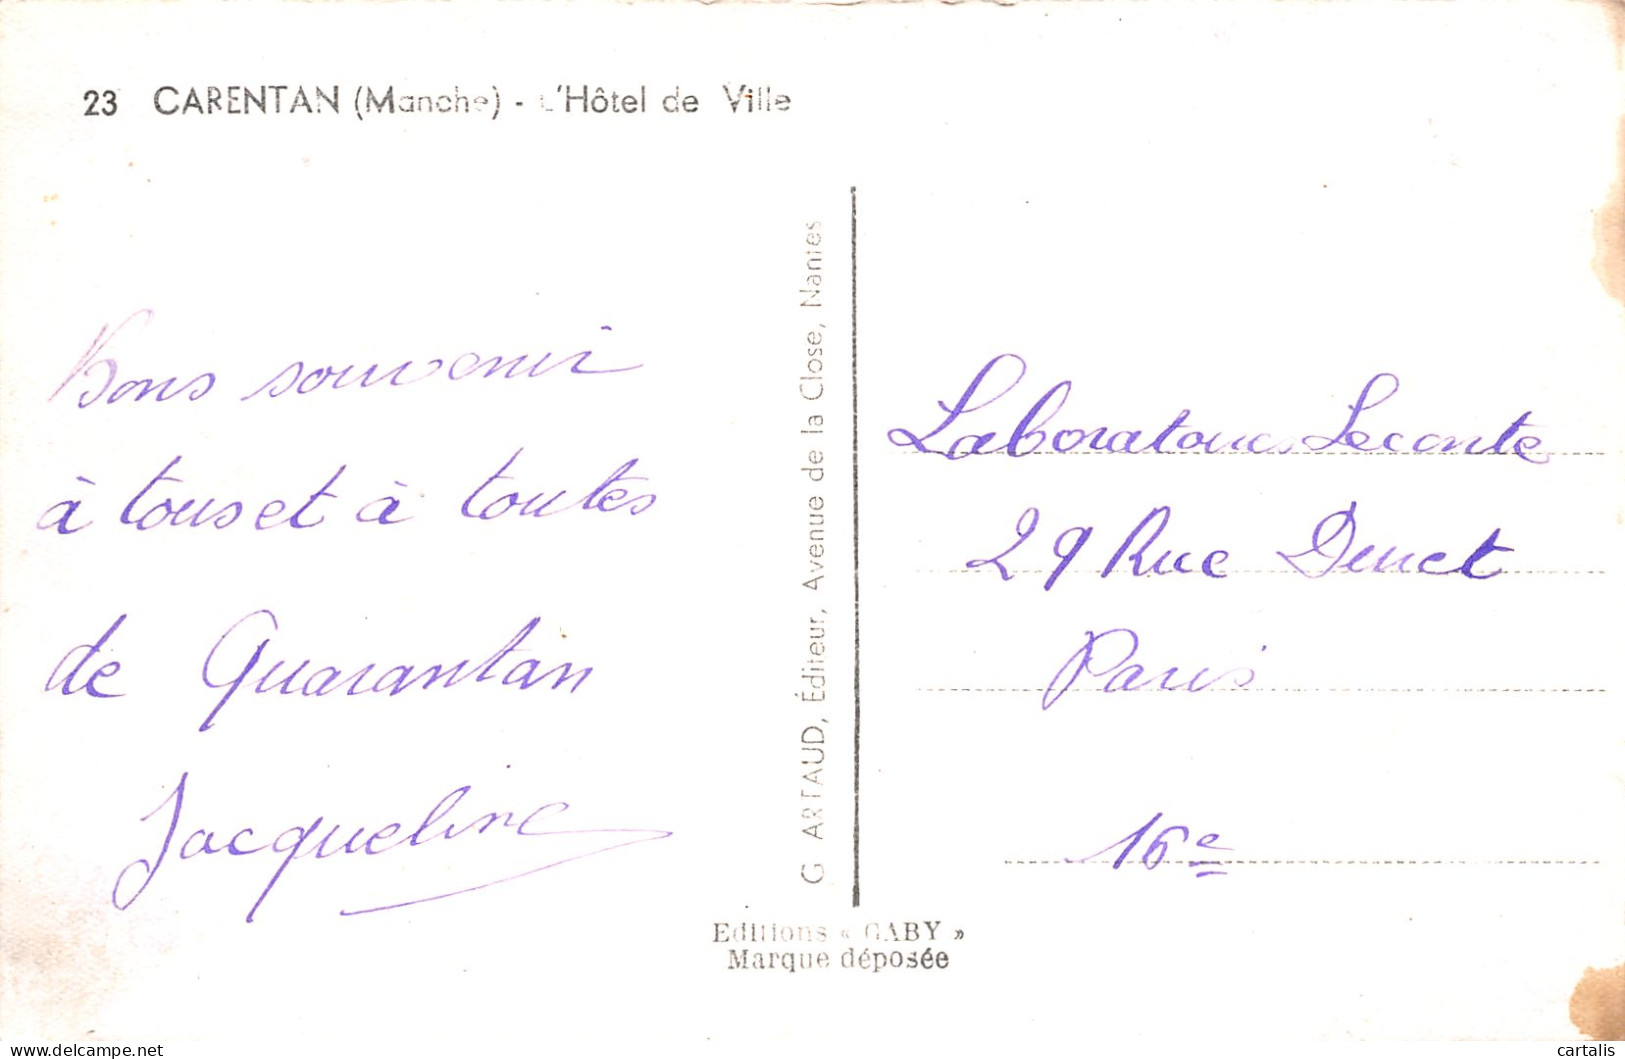 23 CARENTAN (Manche) - L'Hôtel de Ville
Bons souvenir
à tous et à toutes
de Quarantan
Jacqueline
G ARTAUD, Éditeur, Avenue de la Close, Nantes
Editions « GABY »
Marque déposée
Laboratoires Leconte
29 Rue Duret
Paris
16e
www.delcampe.net
cartalis